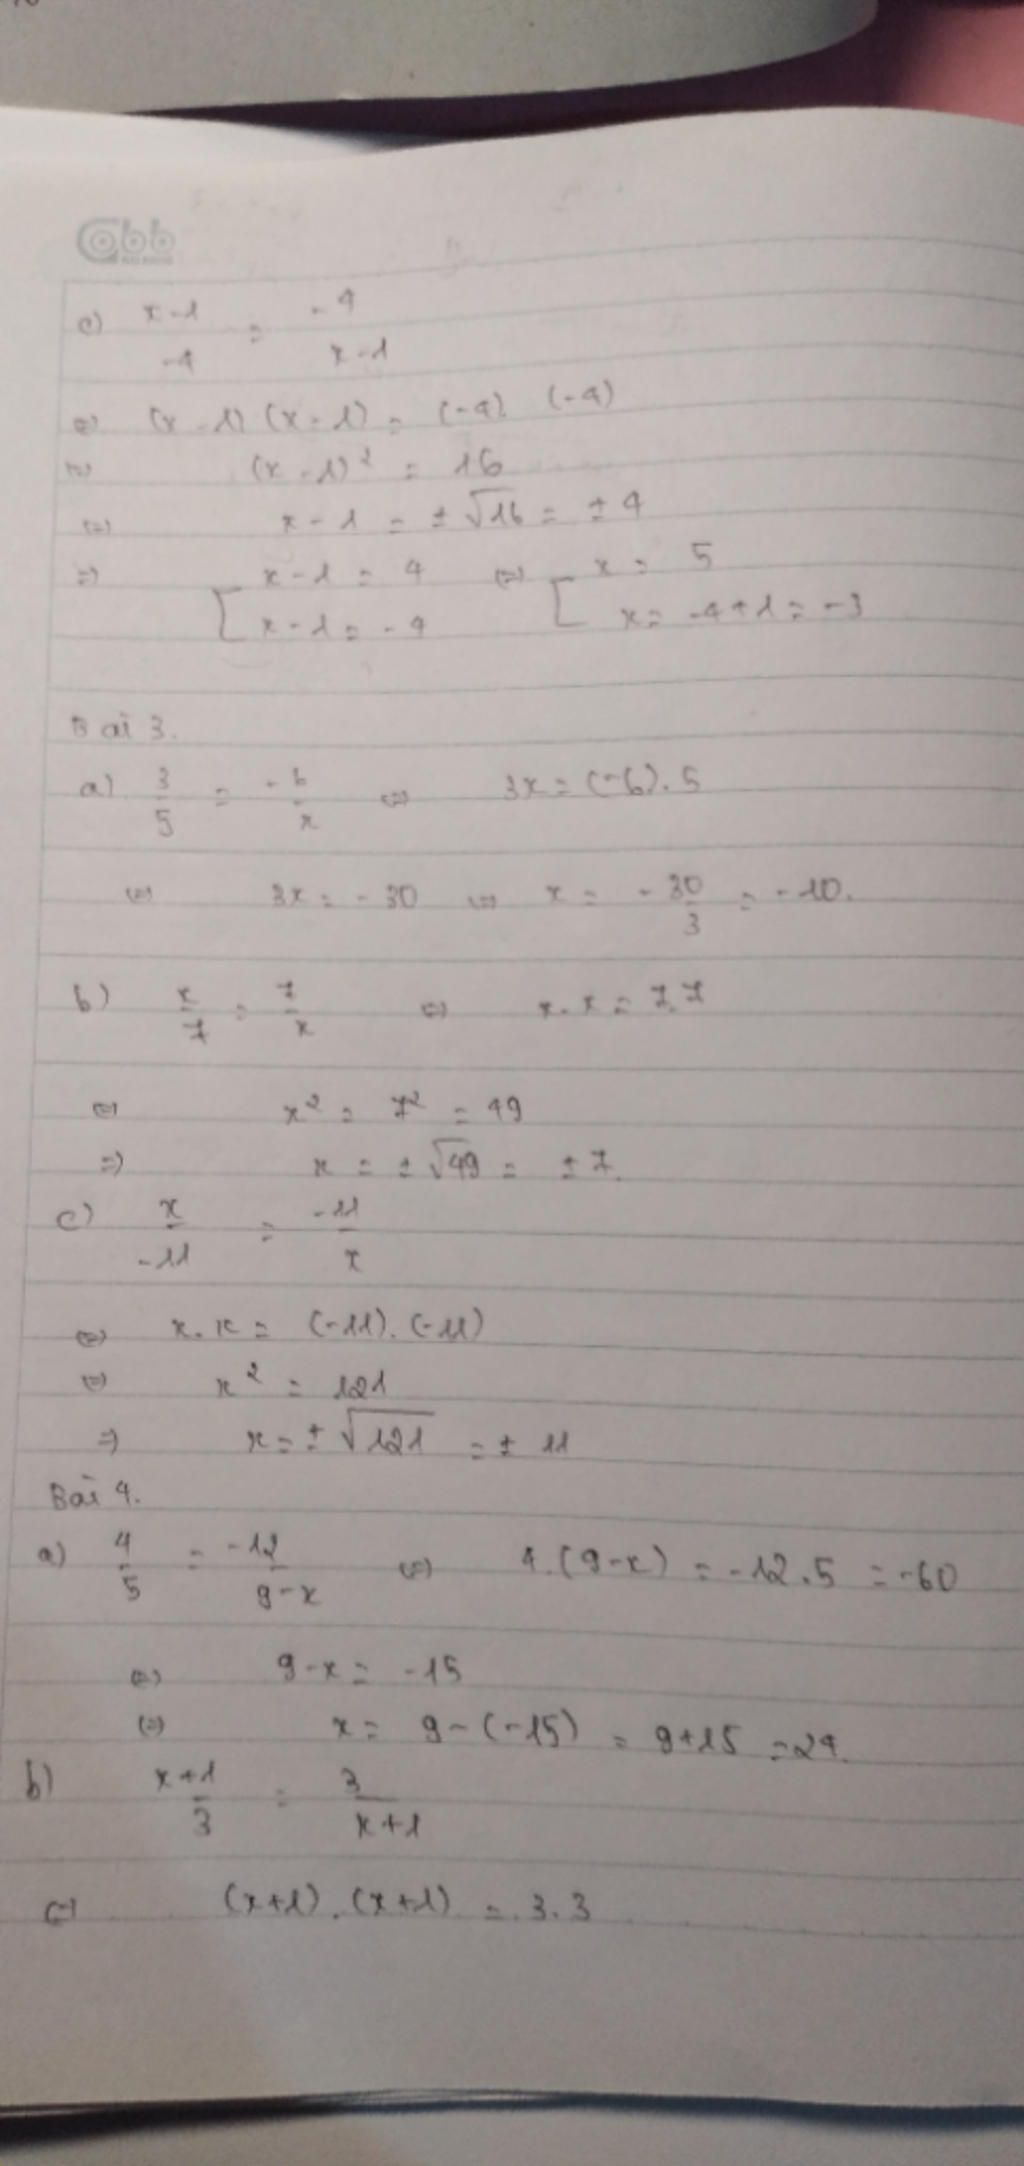 abb
c) x-1 / -4 = -4 / x-1
⇔ (x-1)(x-1) = (-4). (-4)
⇔ (x-1)² = 16
⇔ x-1 = ±√16 = ±4
⇒ [ x-1 = 4 ⇔ [ x = 5
x-1 = -4 x = -4+1 = -3
Bài 3.
a) 3/5 = -6/x ⇔ 3x = (-6).5
⇔ 3x = -30 ⇔ x = -30/3 = -10.
b) x/7 = 7/x ⇔ x.x = 7.7
⇔ x² = 7² = 49
⇒ x = ±√49 = ±7.
c) x/-11 = -11/x
⇔ x.x = (-11).(-11)
⇔ x² = 121
⇒ x = ±√121 = ± 11
Bài 4.
a) 4/5 = -12/9-x ⇔ 4.(9-x) = -12.5 = -60
⇔ 9-x = -15
⇔ x = 9-(-15) = 9+15 = 24.
b) x+1 / 3 = 3 / x+1
⇔ (x+1).(x+1) = 3.3